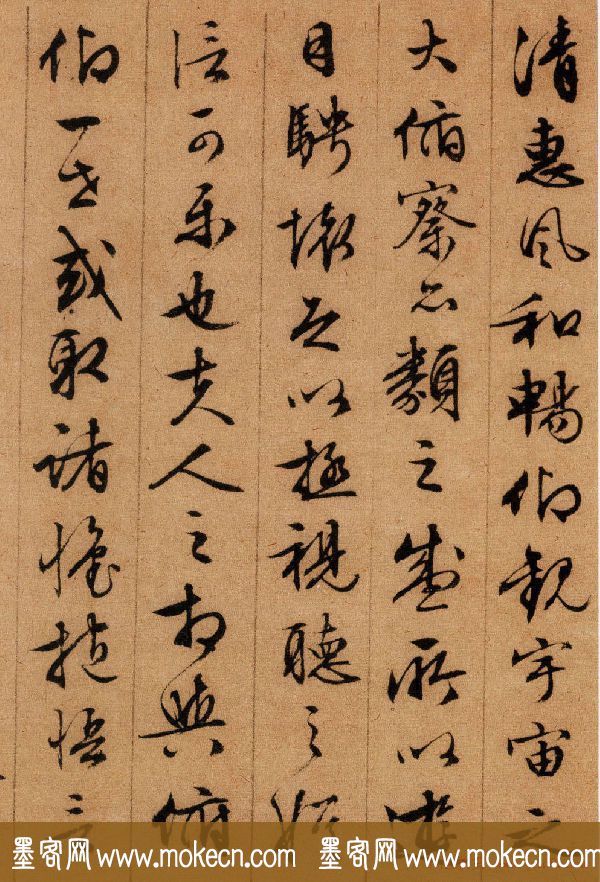 清惠風和暢仰觀宇宙之
大俯察品類之盛所以遊
目騁懷足以極視聽之娛
信可樂也夫人之相與俯
仰一世或取諸懷抱悟言
墨客网 www.mokecn.com 墨客网 www.mokecn.com